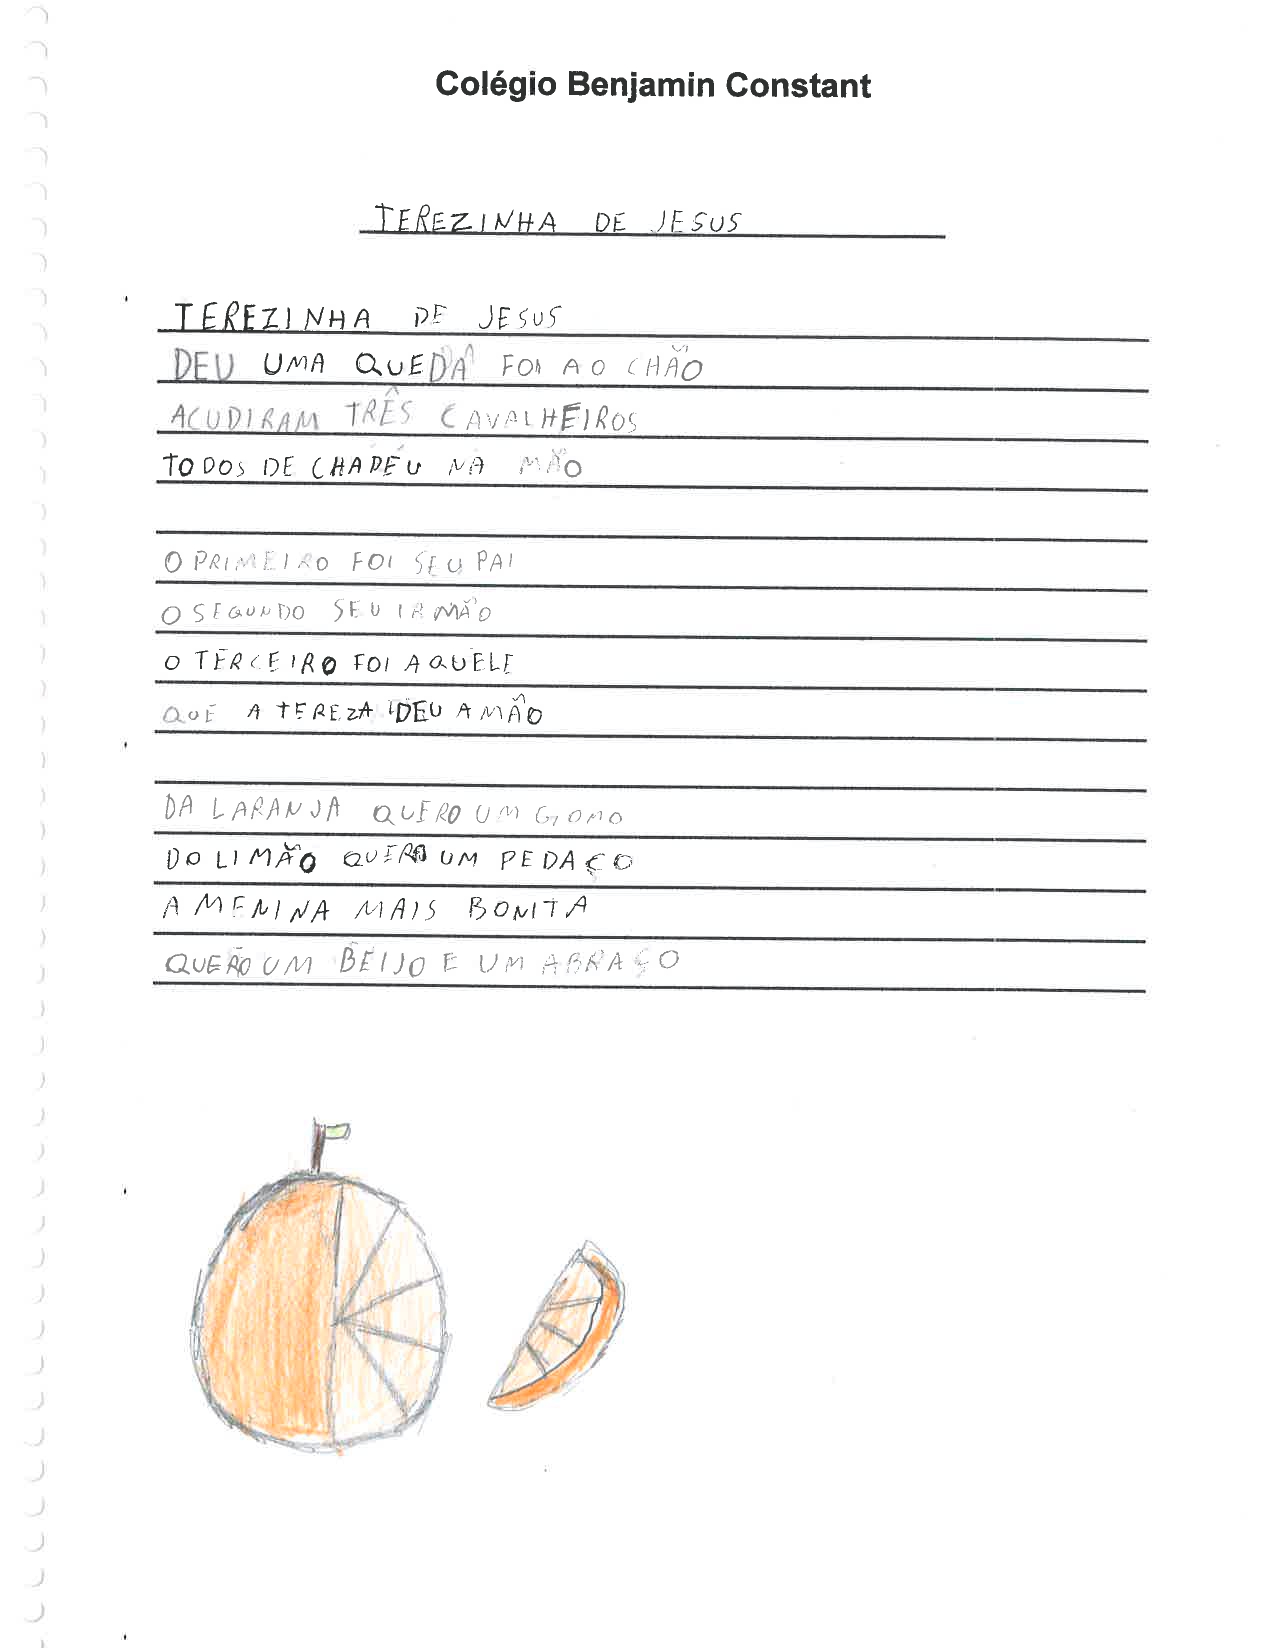 Colégio Benjamin Constant
TEREZINHA DE JESUS
TEREZINHA DE JESUS
DEU UMA QUEDA FOI AO CHÃO
ACUDIRAM TRÊS CAVALHEIROS
TODOS DE CHAPÉU NA MÃO
O PRIMEIRO FOI SEU PAI
O SEGUNDO SEU IRMÃO
O TERCEIRO FOI AQUELE
QUE A TEREZA DEU A MÃO
DA LARANJA QUERO UM GOMO
DO LIMÃO QUERO UM PEDAÇO
A MENINA MAIS BONITA
QUERO UM BEIJO E UM ABRAÇO